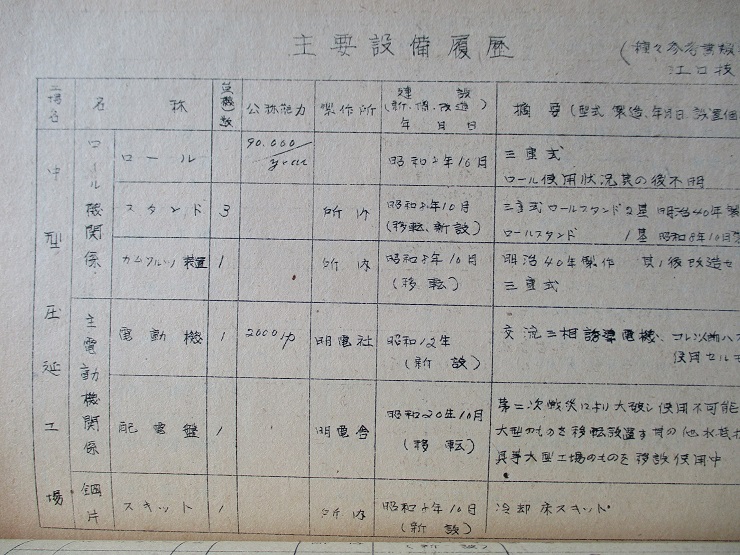 主要設備履歴
(種々参考資料
江口技
工場名 名称 台機数 公称能力 製作所 建設 (新、増、改造) 年月日 摘要 (型式 製造、年月日 設置個
中型圧延工場
ロール機関係
ロール 90.000/year 昭和 年10月 三重式
ロール使用状況其の後不明
スタンド 3 所内 昭和8年10月 (移転、新設) 三重式ロールスタンド2基 明治40年製
ロールスタンド 1基 昭和8年10月
装置 1 所内 昭和8年10月 (移転) 明治40年製作 其ノ後改造セ
三重式
主電動機関係
電動機 1 2000 明電社 昭和12年 (新設) 交流三相誘導電機、コレ以前ハ
使用セル
配電盤 1 明電舎 昭和20年10月 (移転) 第二次戦災により大破し使用不可能
大型のものを移転設置す其の他
具等大型工場のものを移設使用中
鋼片
スキット 1 所内 昭和 年10月 (新設) 冷却床スキット